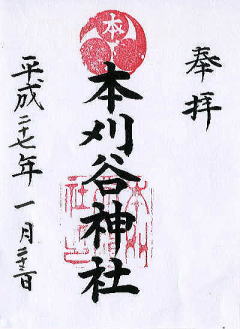 奉拝
本
本刈谷神社
平成二十七年一月二十三日